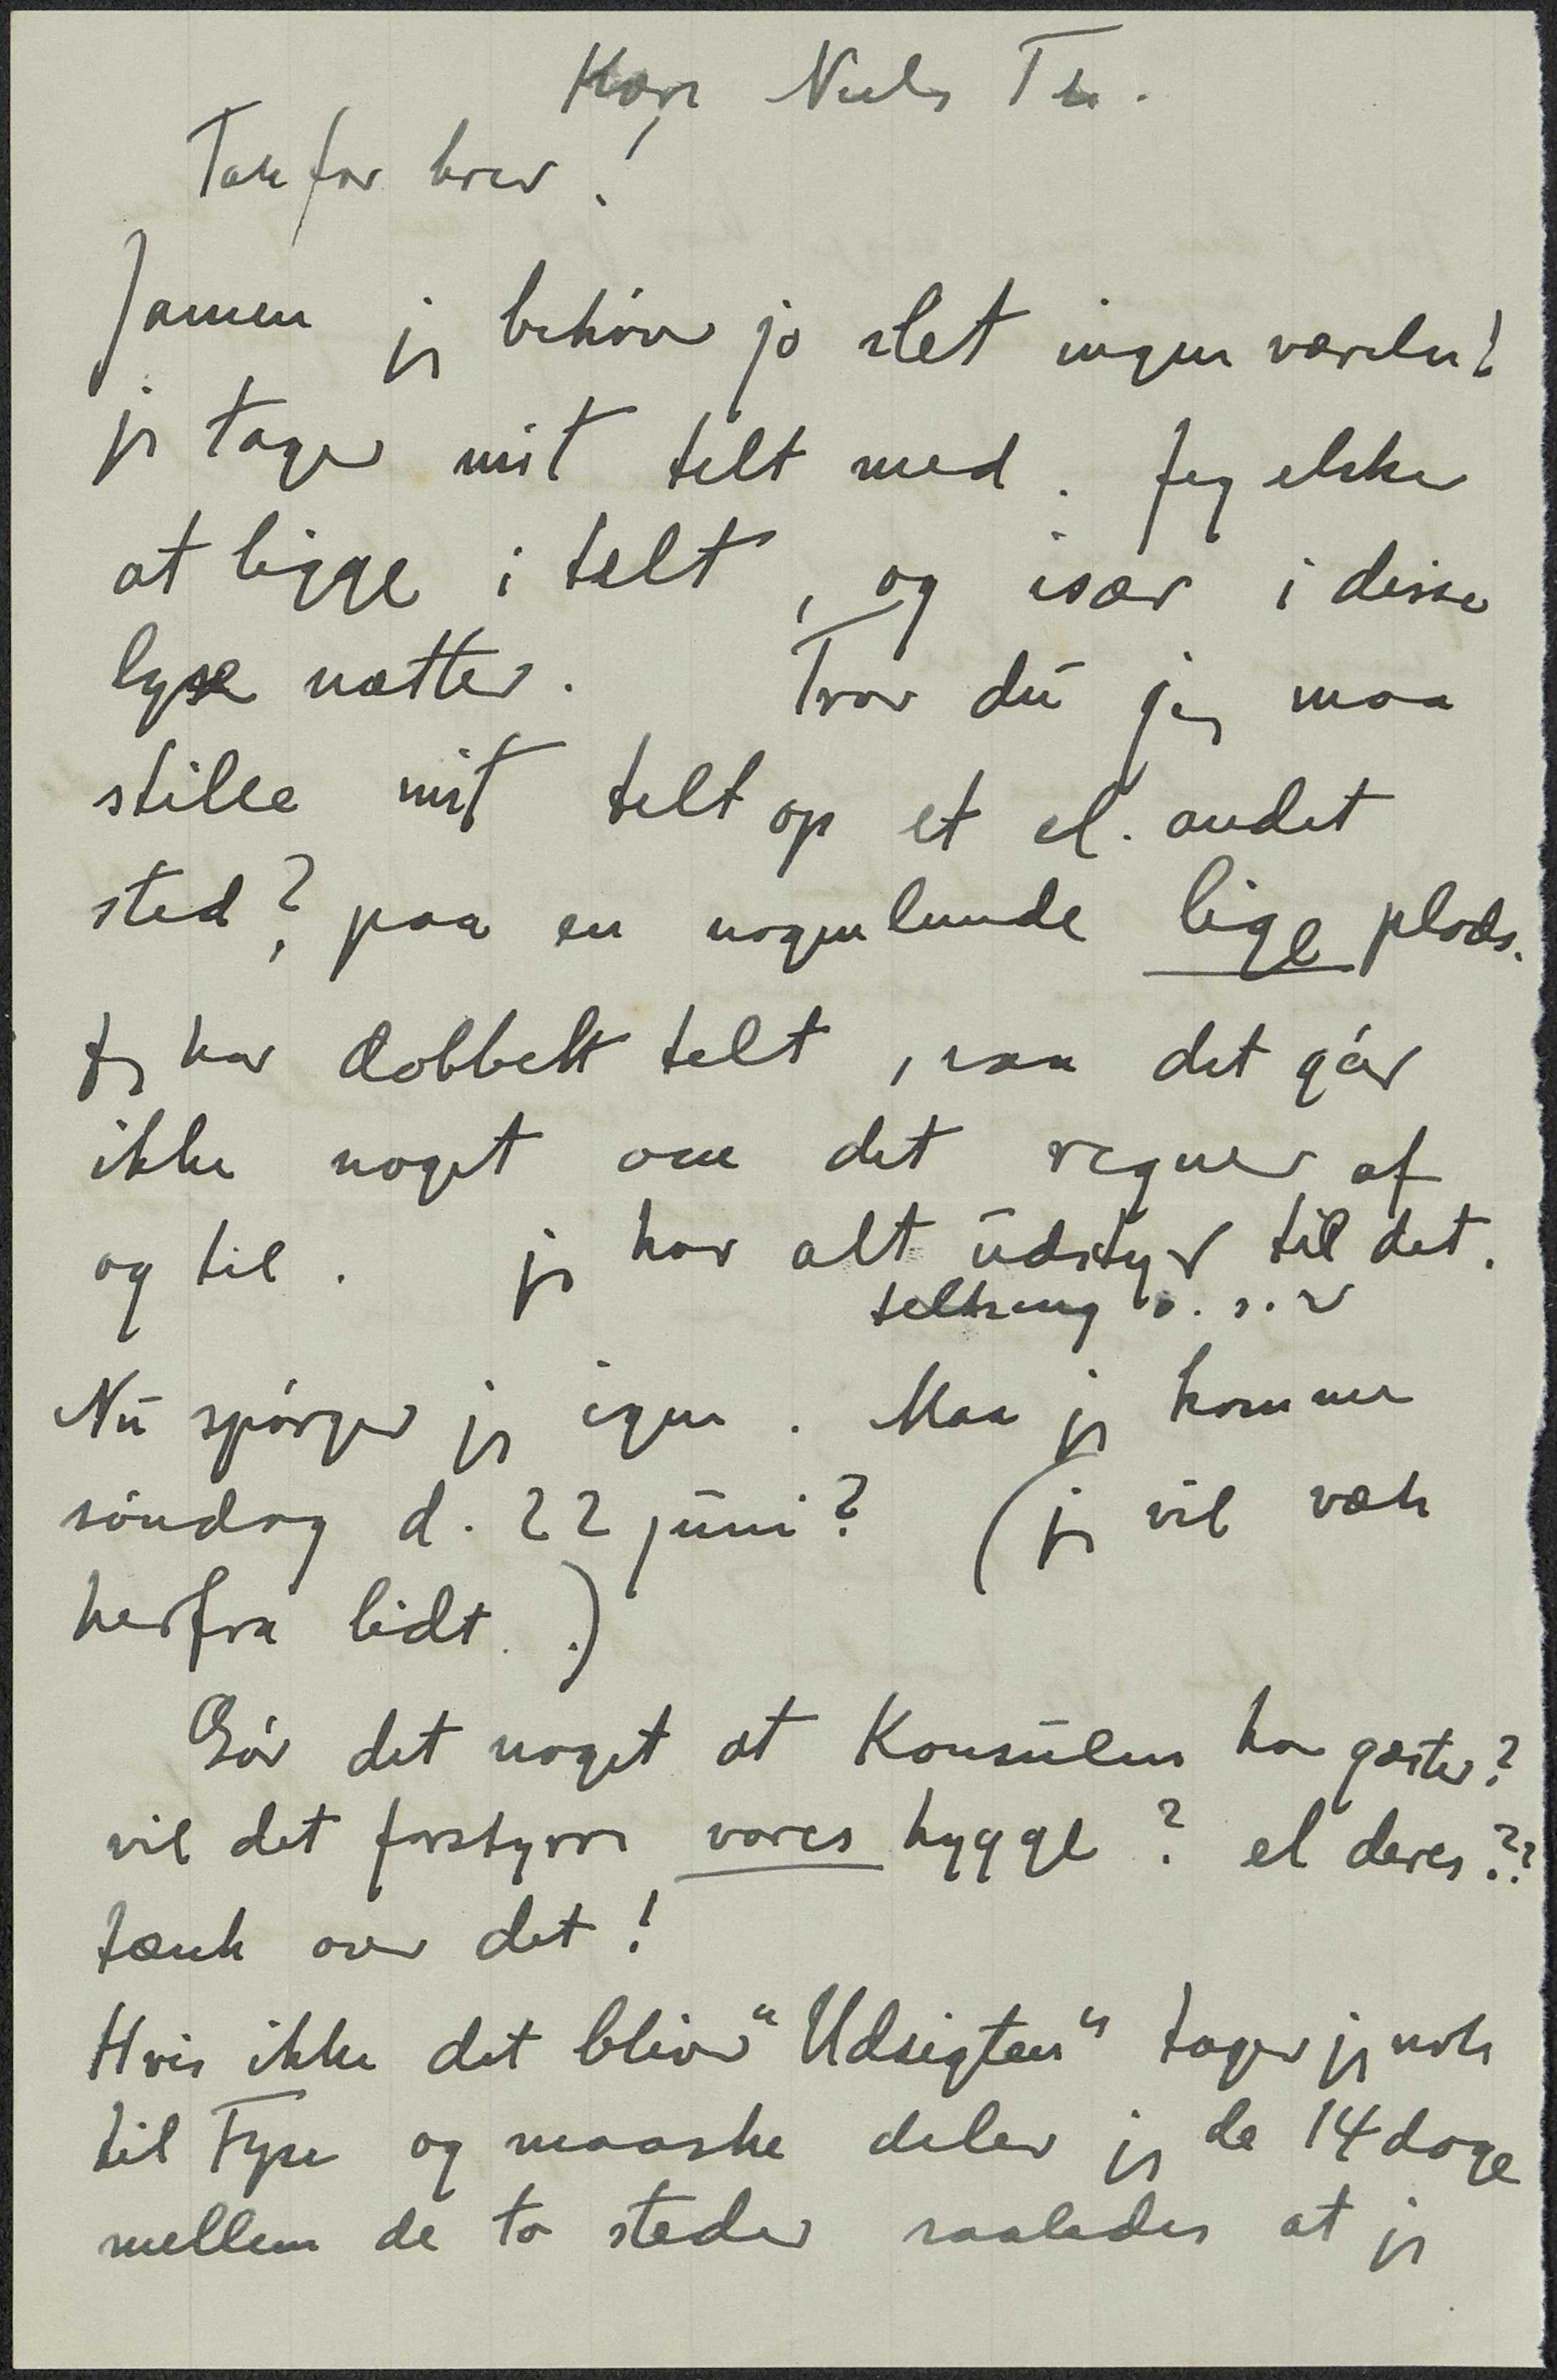 Kære Niels Th.
Tak for brev!
Jamen jeg behöver jo slet ingen værelse!
jeg tager mit telt med. Jeg elsker
at ligge i telt, og især i disse
lyse nætter. Tror du jeg maa
stille mit telt op et el. andet
sted? paa en nogenlunde lige plads.
Jeg har dobbelt telt, saa det gör
ikke noget om det regner af
og til. jeg har alt udstyr til det.
teltseng o.s.v
Nu spörger jeg igen. Maa jeg komme
söndag d. 22 juni? (jeg vil væk
herfra lidt.)
Gör det noget at Konsulen har gæster?
vil det forstyrre vores hygge? el deres??
tænk over det!
Hvis ikke det bliver "Udsigten" tager jeg nok
til Fyn og maaske deler jeg de 14 dage
mellem de to steder saaledes at jeg